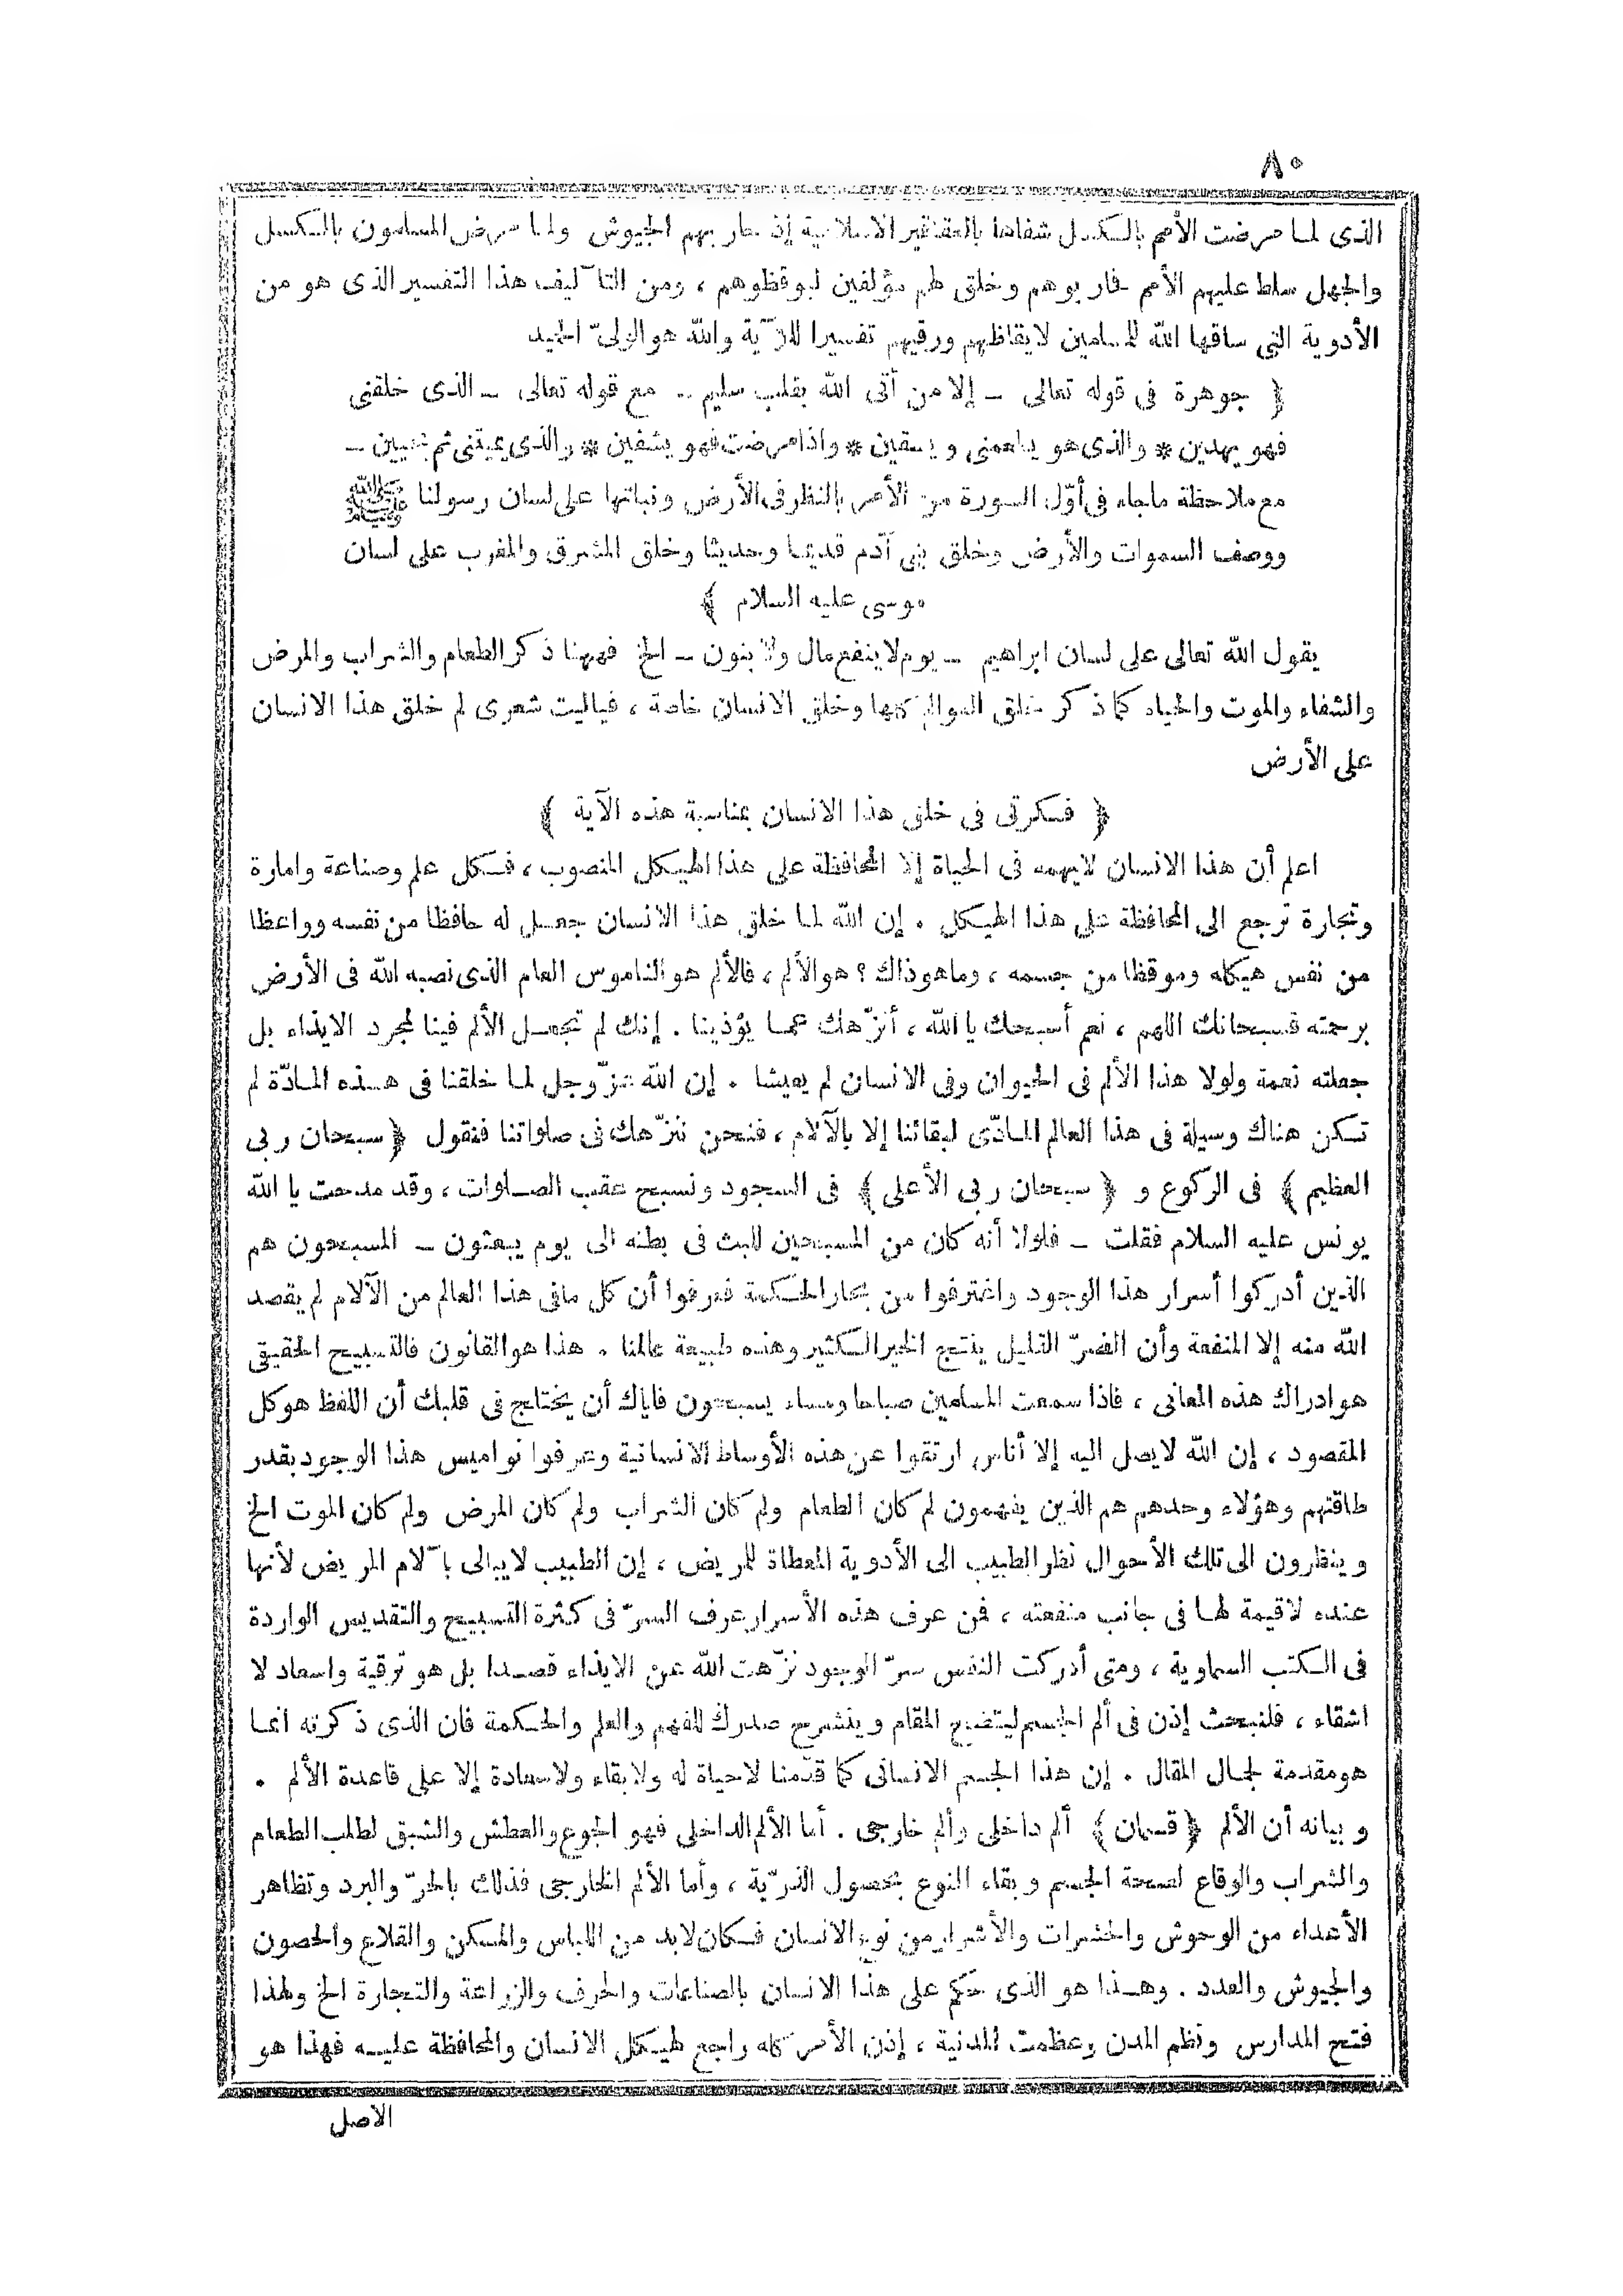 ٨٠
الذى لما مرضت الأمم بالكسل شفاها بالعقاقير الاسلامية إذ حاربهم الجيوش ولما مرض المسلمون بالكسل
والجهل سلط عليهم الأمم فاربوهم وخلق لهم مؤلفين ليوقظوهم ، ومن التآليف هذا التفسير الذى هو من
الأدوية التي ساقها الله للمسلمين لايقاظهم ورقيهم تفسيرا للآية والله هو الولىّ الحميد
﴿ جوهرة فى قوله تعالى – إلا من أتى الله بقلب سليم – مع قوله تعالى – الذى خلقنى
فهو يهدين * والذى هو يطعمنى ويسقين * واذا مرضت فهو يشفين * والذى يميتنى ثم يحيين –
مع ملاحظة ماجاء فى أوّل السورة من الأمر بالنظر فى الأرض ونباتها على لسان رسولنا ﷺ
ووصف السموات والأرض وخلق بنى آدم قديما وحديثا وخلق المشرق والمغرب على لسان
موسى عليه السلام ﴾
يقول الله تعالى على لسان ابراهيم – يوم لا ينفع مال ولا بنون – الخ فههنا ذكر الطعام والشراب والمرض
والشفاء والموت والحياه كما ذكر خلق العوالم كلها وخلق الانسان خاصة ، فياليت شعرى لم خلق هذا الانسان
على الأرض
﴿ فكرتى فى خلق هذا الانسان بمناسبة هذه الآية ﴾
اعلم أن هذا الانسان لايهمه فى الحياة إلا المحافظة على هذا الهيكل المنصوب ، فكل علم وصناعة وامارة
وتجارة ترجع الى المحافظة على هذا الهيكل . إن الله لما خلق هذا الانسان جعل له حافظا من نفسه وواعظا
من نفس هيكله وموقظا من جسمه ، وماهو ذاك ؟ هو الألم ، فالألم هو الناموس العام الذى نصبه الله فى الأرض
برحمته فسبحانك اللهم ، نعم أسبحك يا الله ، أنزّهك عما يؤذينا . إنك لم تجعل الألم فينا لمجرد الايذاء بل
جعلته نعمة ولولا هذا الألم فى الحيوان وفى الانسان لم يعيشا . إن الله عزّ وجل لما خلقنا فى هذه المادّة لم
تكن هناك وسيلة فى هذا العالم المادّى لبقائنا إلا بالآلام ، فنحن ننزّهك فى صلواتنا فنقول ﴿ سبحان ربى
العظيم ﴾ فى الركوع و ﴿ سبحان ربى الأعلى ﴾ فى السجود ونسبح عقب الصلوات ، وقد مدحت يا الله
يونس عليه السلام فقلت – فلولا أنه كان من المسبحين للبث فى بطنه الى يوم يبعثون – المسبحون هم
الذين أدركوا أسرار هذا الوجود واغترفوا من بحار الحكمة فعرفوا أن كل مافى هذا العالم من الآلام لم يقصد
الله منه إلا المنفعة وأن الضرّ القليل ينتج الخير الكثير وهذه طبيعة عالمنا . هذا هو القانون فالتسبيح الحقيقى
هو ادراك هذه المعانى ، فاذا سمعت المسلمين صباحا ومساء يسبحون فاياك أن يختلج فى قلبك أن اللفظ هو كل
المقصود ، إن الله لايصل اليه إلا أناس ارتقوا عن هذه الأوساط الانسانية وعرفوا نواميس هذا الوجود بقدر
طاقتهم وهؤلاء وحدهم هم الذين يفهمون لم كان الطعام ولم كان الشراب ولم كان المرض ولم كان الموت الخ
وينظرون الى تلك الأحوال نظر الطبيب الى الأدوية المعطاة للمريض ، إن الطبيب لايبالى بآلام المريض لأنها
عنده لاقيمة لها فى جانب منفعته ، فمن عرف هذه الأسرار عرف السرّ فى كثرة التسبيح والتقديس الواردة
فى الكتب السماوية ، ومتى أدركت النفس سرّ الوجود نزّهت الله عن الايذاء قصدا بل هو ترقية واسعاد لا
اشقاء ، فلنبحث إذن فى ألم الجسم ليتضح المقام وينشرح صدرك للفهم والعلم والحكمة فان الذى ذكرته انما
هو مقدمة لجمال المقال . إن هذا الجسم الانسانى كما قدّمنا لاحياة له ولا بقاء ولا سعادة إلا على قاعدة الألم .
وبيانه أن الألم ﴿ قسمان ﴾ ألم داخلى وألم خارجى . أما الألم الداخلى فهو الجوع والعطش والشبق لطلب الطعام
والشراب والوقاع لصحة الجسم وبقاء النوع بحصول الذرّية ، وأما الألم الخارجى فذلك بالحرّ والبرد وتظاهر
الأعداء من الوحوش والحشرات والأشرار من نوع الانسان فكان لابد من اللباس والمسكن والقلاع والحصون
والجيوش والعدد . وهذا هو الذى حكم على هذا الانسان بالصناعات والحرف والزراعة والتجارة الخ ولهذا
فتح المدارس ونظم المدن وعظمت المدنية ، إذن الأمر كله راجع لهيكل الانسان والمحافظة عليه فهذا هو
الاصل